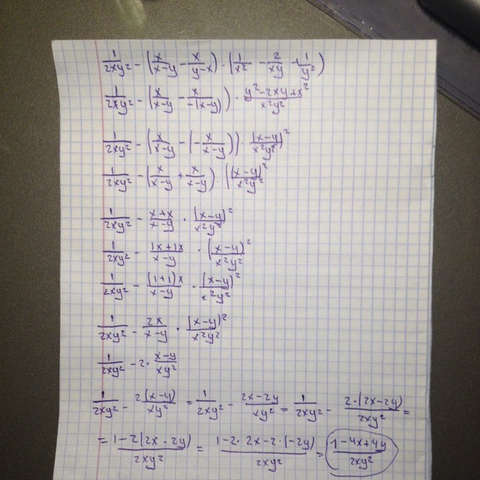 1/(2xy²) - (x/(x-y) - x/(y-x)) · (1/x² - 2/(xy) - 1/y²)
1/(2xy²) - (x/(x-y) - x/(-(x-y))) · (y²-2xy+x²)/(x²y²)
1/(2xy²) - (x/(x-y) - (-x/(x-y))) · (x-y)²/(x²y²)
1/(2xy²) - (x/(x-y) + x/(x-y)) · (x-y)²/(x²y²)
1/(2xy²) - (x+x)/(x-y) · (x-y)²/(x²y²)
1/(2xy²) - (1x+1x)/(x-y) · (x-y)²/(x²y²)
1/(2xy²) - (1+1)x/(x-y) · (x-y)²/(x²y²)
1/(2xy²) - 2x/(x-y) · (x-y)²/(x²y²)
1/(2xy²) - 2 · (x-y)/(xy²)
1/(2xy²) - 2(x-y)/(xy²) = 1/(2xy²) - (2x-2y)/(xy²) = 1/(2xy²) - 2·(2x-2y)/(2xy²) =
= (1-2(2x-2y))/(2xy²) = (1-2·2x-2·(-2y))/(2xy²) = (1-4x+4y)/(2xy²)